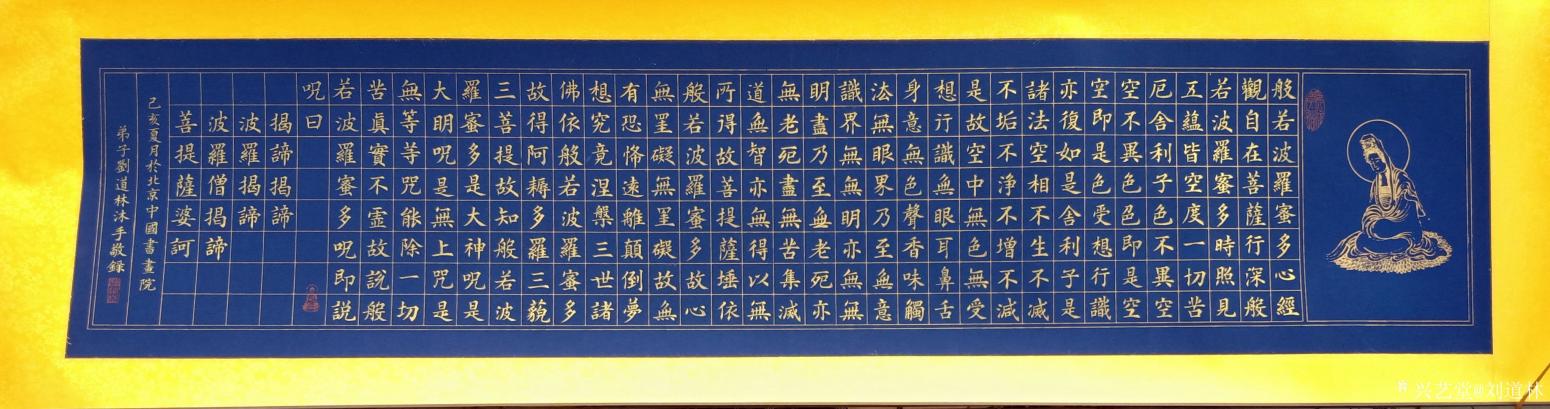 般若波羅蜜多心經
觀自在菩薩行深般
若波羅蜜多時照見
五蘊皆空度一切苦
厄舍利子色不異空
空不異色色即是空
空即是色受想行識
亦復如是舍利子是
諸法空相不生不滅
不垢不淨不增不減
是故空中無色無受
想行識無眼耳鼻舌
身意無色聲香味觸
法無眼界乃至無意
識界無無明亦無無
明盡乃至無老死亦
無老死盡無苦集滅
道無智亦無得以無
所得故菩提薩埵依
般若波羅蜜多故心
無罣礙無罣礙故無
有恐怖遠離顛倒夢
想究竟涅槃三世諸
佛依般若波羅蜜多
故得阿耨多羅三藐
三菩提故知般若波
羅蜜多是大神呪是
大明呪是無上咒是
無等等咒能除一切
苦真實不虛故說般
若波羅蜜多呪即説
呪曰
揭諦揭諦
波羅揭諦
波羅僧揭諦
菩提薩婆訶
己亥夏月於北京中國書畫院
弟子劉道林沐手敬録
兴艺堂@刘道林